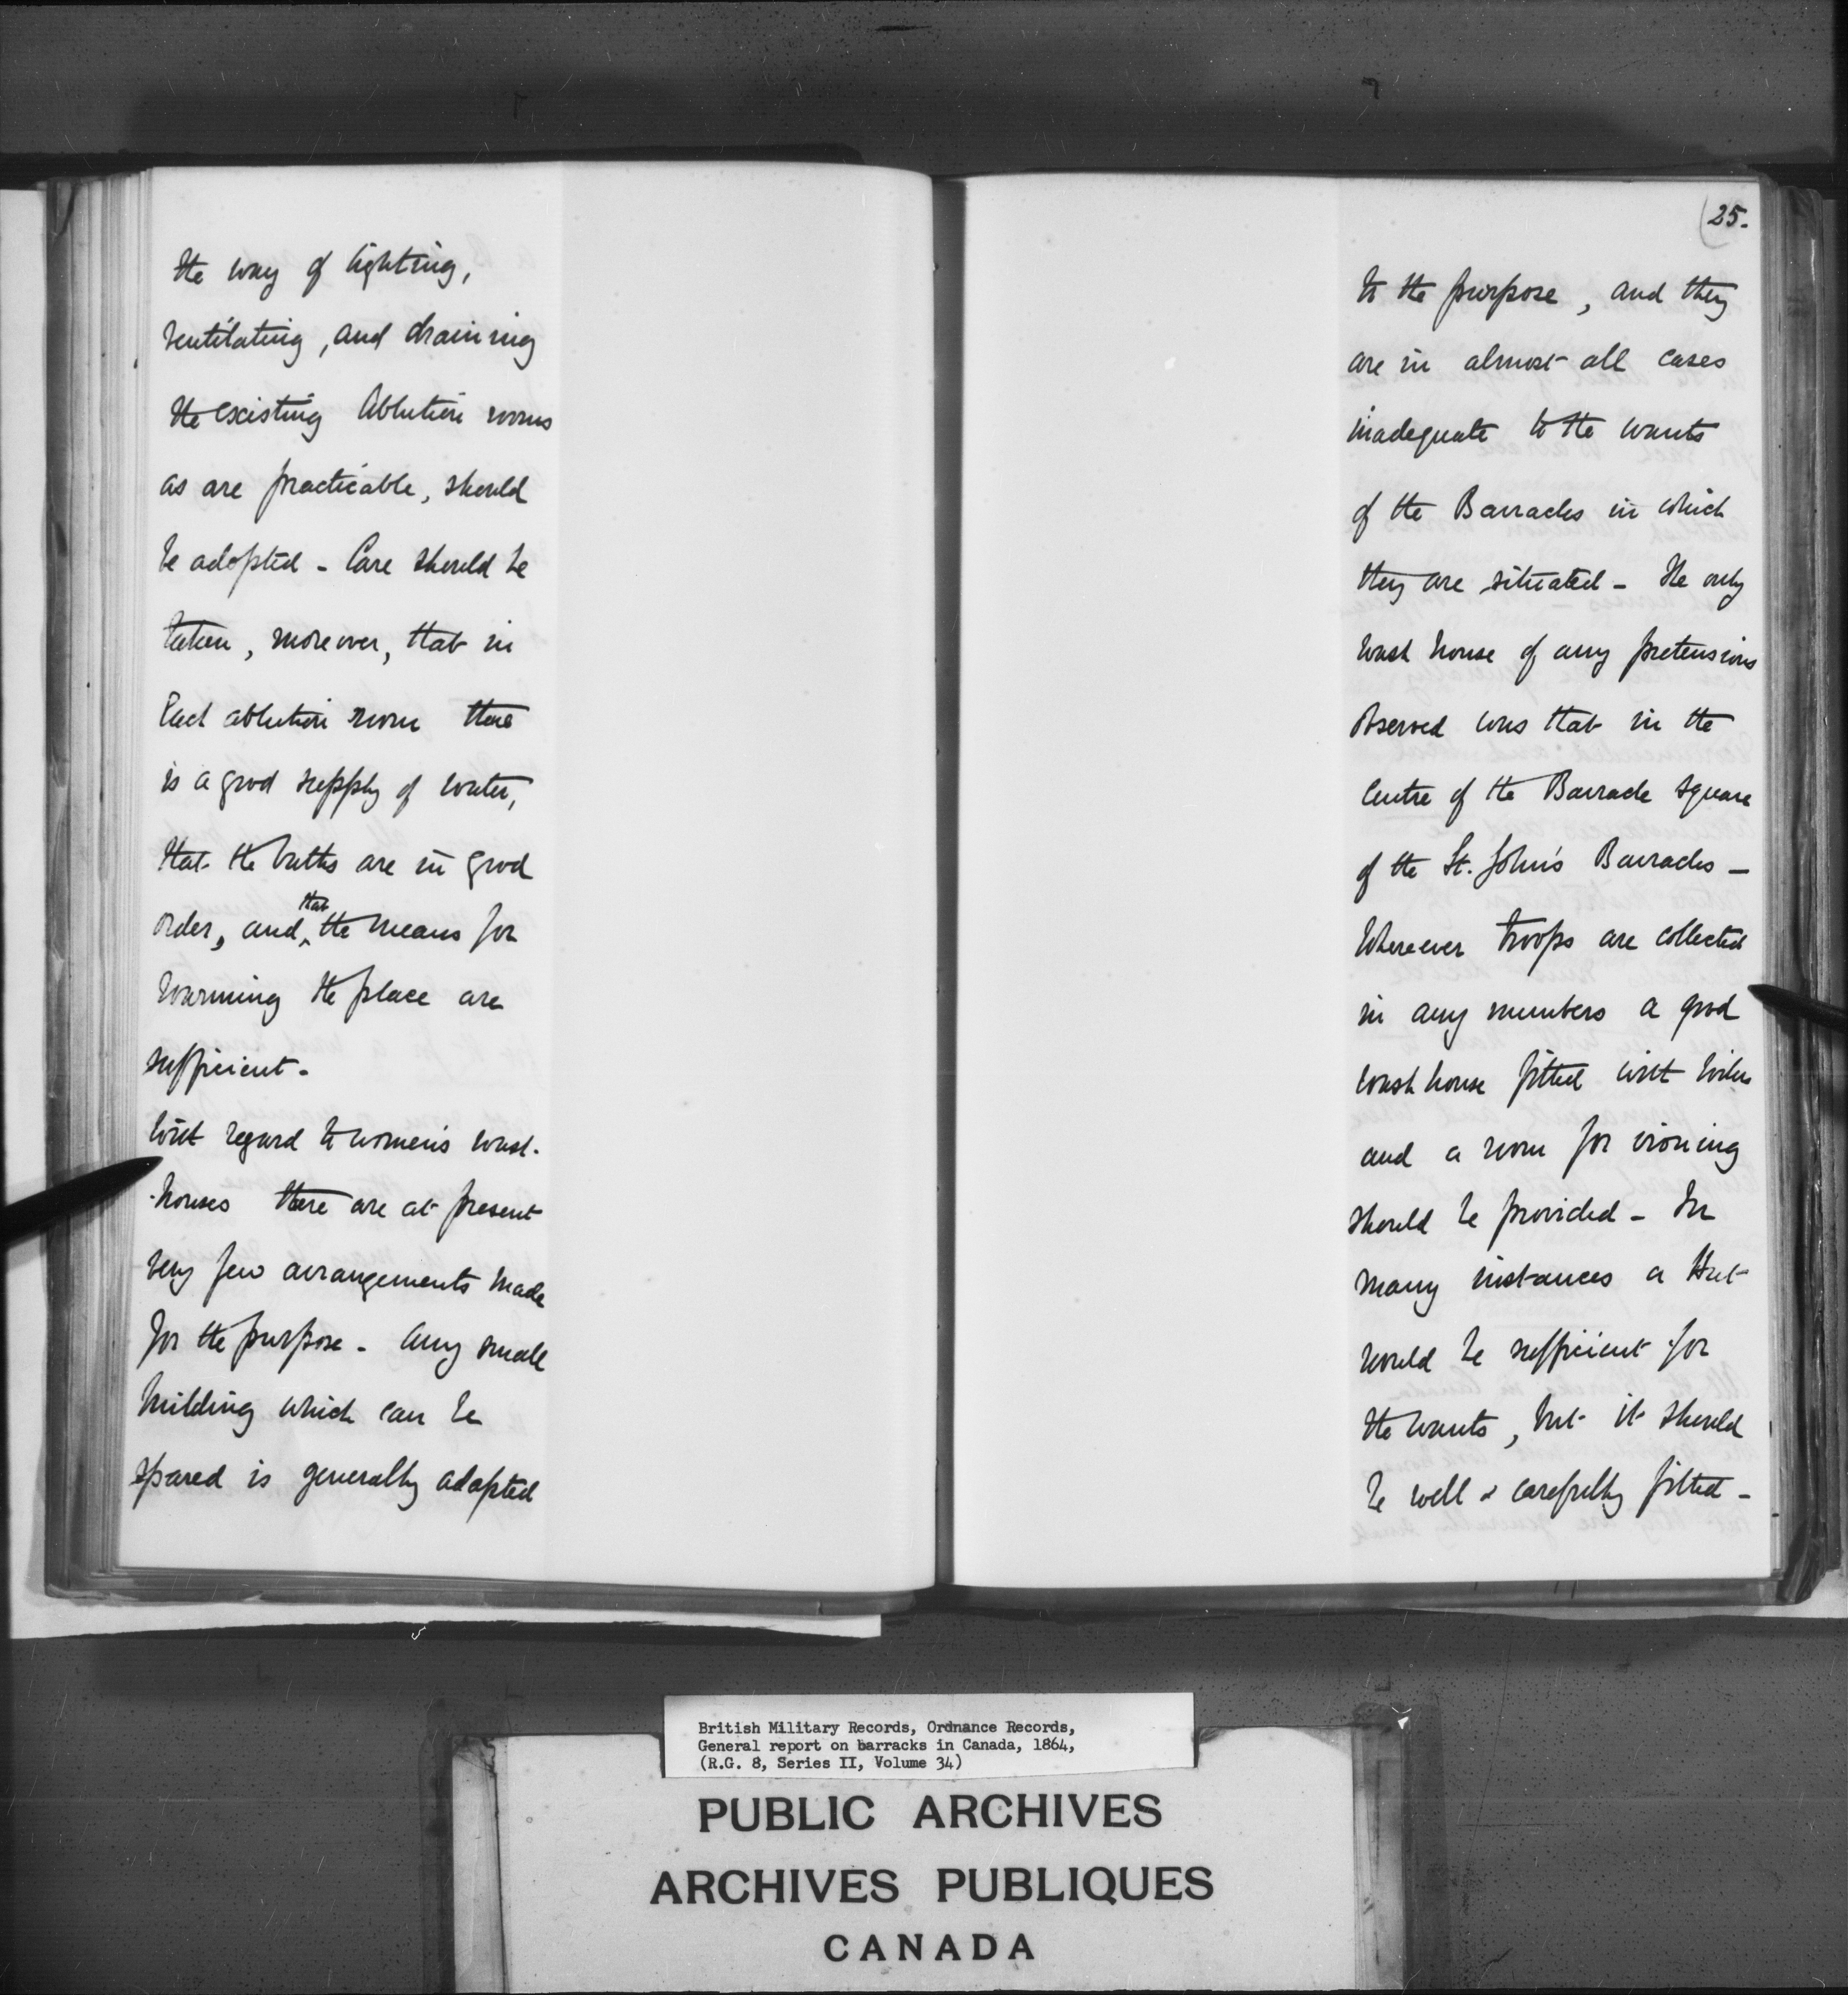 the way of lighting,
ventilating, and draining
the existing Ablution rooms
as are practicable, should
be adopted - Care should be
taken, moreover, that in
Each ablution room there
is a good supply of water,
that the baths are in good
order, and that the means for
warming the place are
sufficient -
With regard to women's wash-
-houses there are at present
very few arrangements made
for the purpose - Any small
building which can be
spared is generally adapted
25.
to the purpose, and they
are in almost all cases
inadequate to the wants
of the Barracks in which
they are situated - The only
wash house of any pretensions
observed was that in the
Centre of the Barrack Square
of the St. John's Barracks -
Whereever troops are collected
in any numbers a good
wash house fitted with boilers
and a room for ironing
should be provided - In
many instances a Hut
would be sufficient for
the wants, but it should
be well & carefully fitted -
British Military Records, Ordnance Records,
General report on barracks in Canada, 1864,
(R.G. 8, Series II, Volume 34)
PUBLIC ARCHIVES
ARCHIVES PUBLIQUES
CANADA